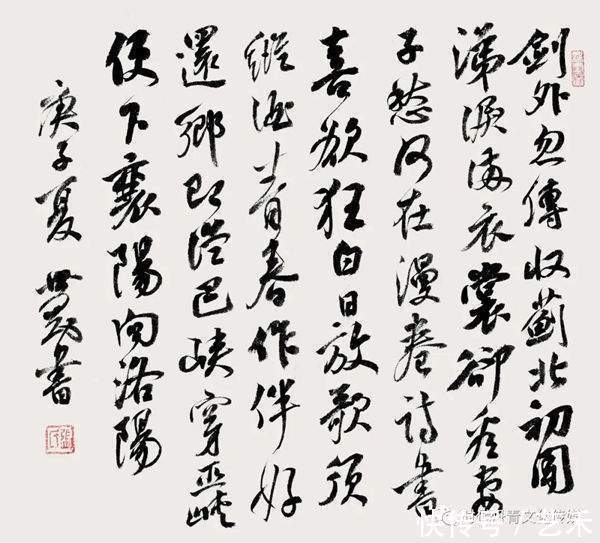 劍外忽傳收薊北初聞
涕淚滿衣裳卻看妻
子愁何在漫卷詩書
喜欲狂白日放歌須
縱酒青春作伴好
還鄉即從巴峽穿巫峽
便下襄陽向洛陽
庚子夏 書
快传号 / 艺术